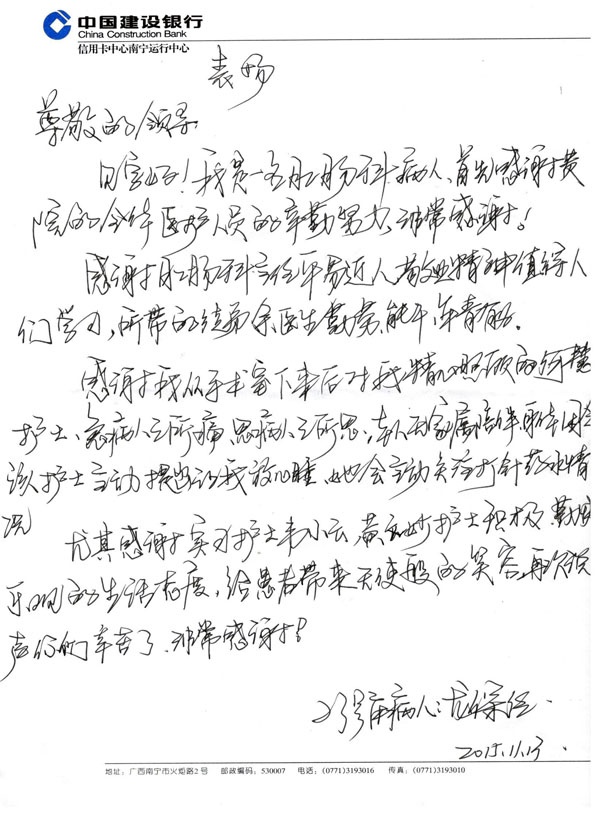 中国建设银行
China Construction Bank
信用卡中心南宁运行中心
表扬
尊敬的领导
您好!我是一名肛肠科病人,首先感谢贵
院的全体医护人员的辛勤努力,非常感谢!
感谢肛肠科主任平易近人敬业精神值得人
们学习,所带的徒弟余医生勤劳,能干,年青有为。
感谢我从手术室下来后对我精心照顾的何
护士、急病人之所痛思病人之所思,本人
该护士主动提出让我放心睡,她会主动关注打针药水情
况
尤其感谢实习护士韦小云,黄 妙护士积极
乐观的生活态度,给患者带来天使般的笑容,再次
声你们辛苦了,非常感谢!
2 病人:尤
2015.11.13.
地址:广西南宁市火炬路2号 邮政编码:530007 电话:(0771)3193016 传真:(0771)3193010